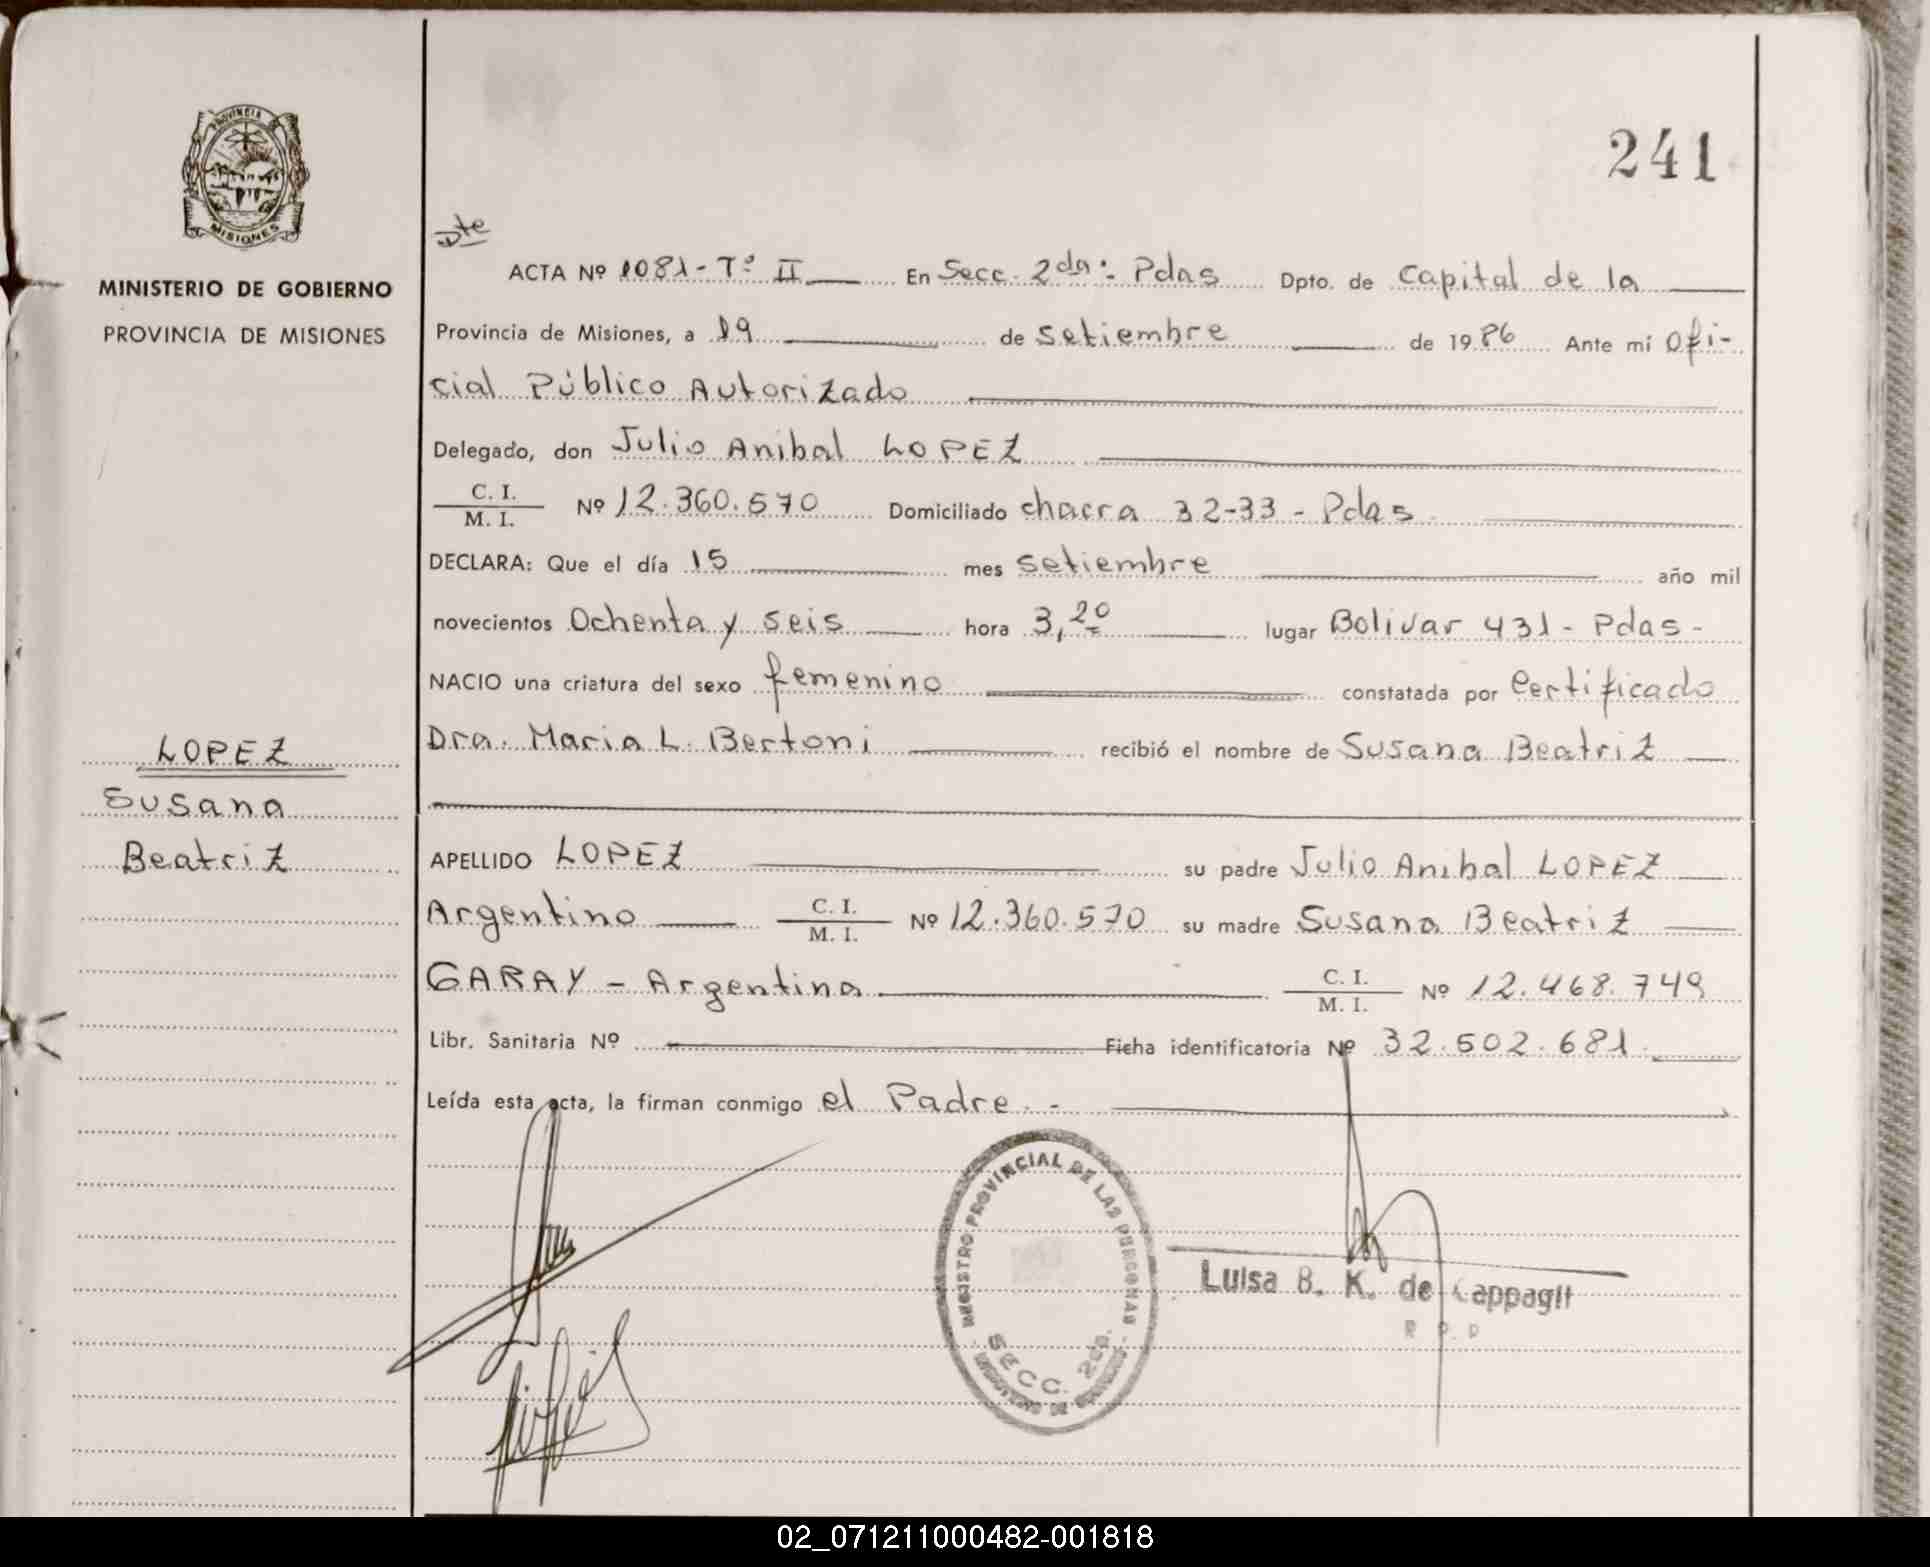 241
PROVINCIA DE
MISIONES
MINISTERIO DE GOBIERNO
PROVINCIA DE MISIONES
Dte
ACTA Nº 1081 - Tº II En Secc. 2da: Pdas Dpto. de Capital de la
Provincia de Misiones, a 19 de Setiembre de 1986 Ante mí Ofi-
cial Público Autorizado
Delegado, don Julio Anibal LOPEZ
C. I.
M. I. Nº 12.360.570 Domiciliado chacra 32-33 - Pdas
DECLARA: Que el día 15 mes Setiembre año mil
novecientos Ochenta y Seis hora 3,20 lugar Bolivar 431 - Pdas -
NACIO una criatura del sexo femenino constatada por Certificado
Dra. Maria L. Bertoni recibió el nombre de Susana Beatriz
LOPEZ
Susana
Beatriz
APELLIDO LOPEZ su padre Julio Anibal LOPEZ
Argentino C. I.
M. I. Nº 12.360.570 su madre Susana Beatriz
GARAY - Argentina C. I.
M. I. Nº 12.468.749
Libr. Sanitaria Nº Ficha identificatoria Nº 32.502.681.
Leída esta acta, la firman conmigo el Padre. -
REGISTRO PROVINCIAL DE LAS PERSONAS
SECC. 2da.
Luisa B. K. de Cappagli
02_071211000482-001818